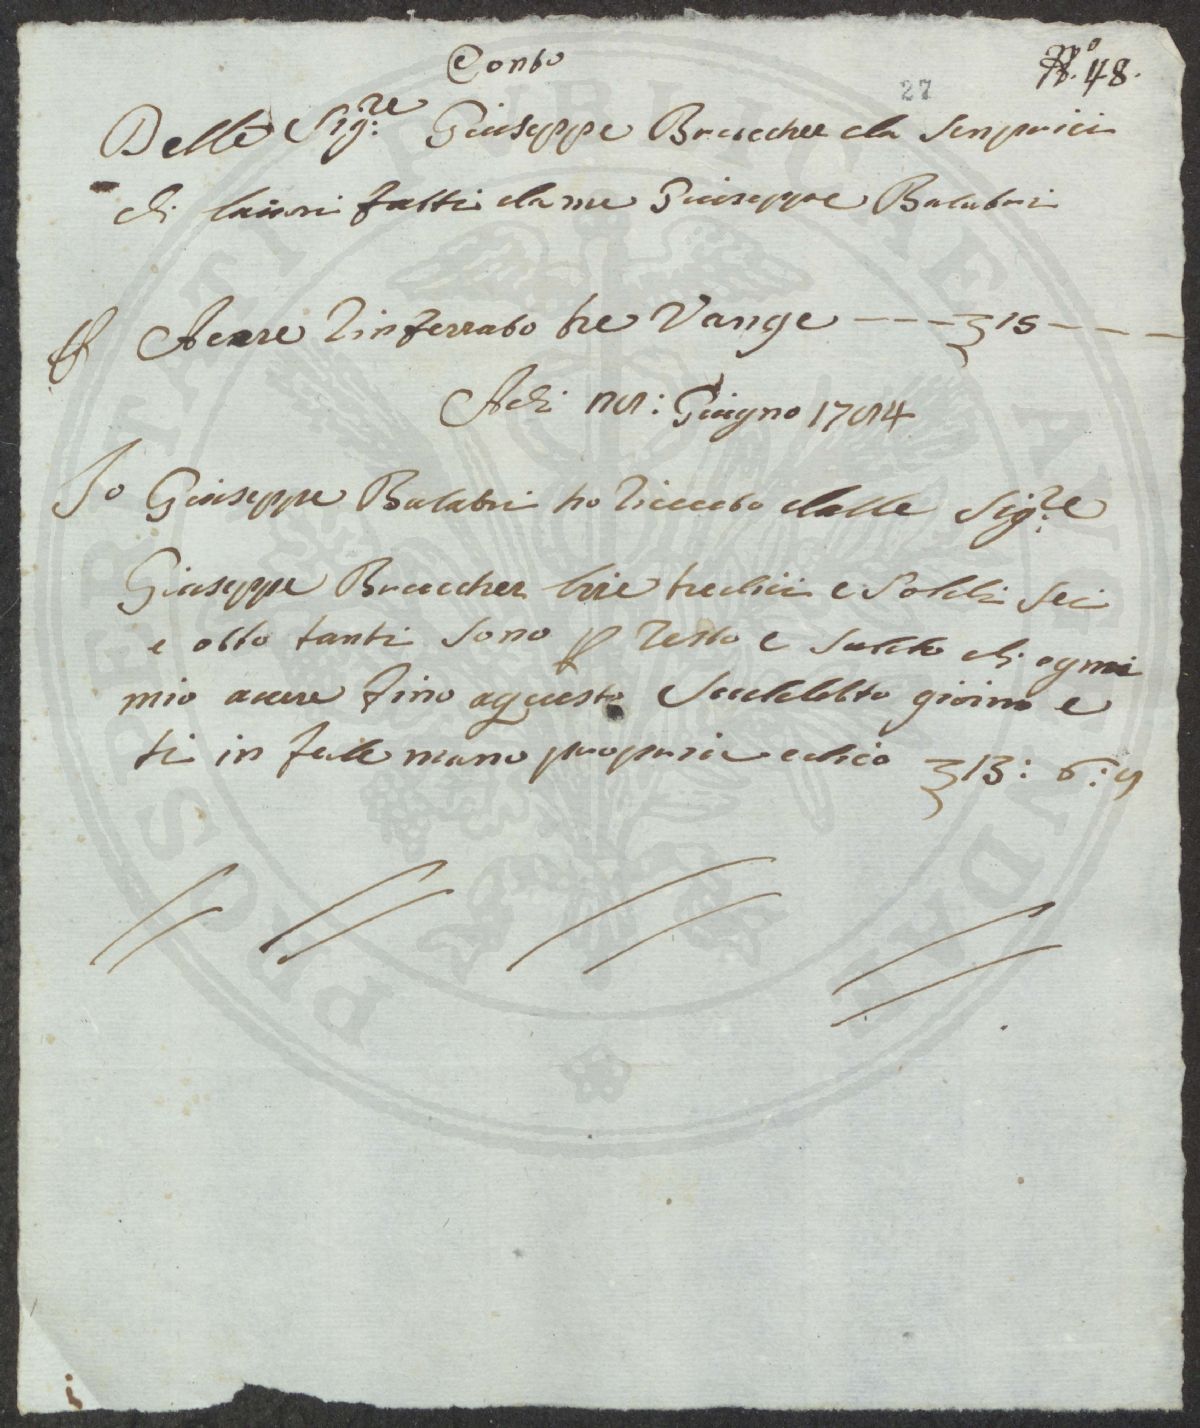 Conto
No. 48.
27
Delle Sig:re Giuseppe Bruccher da
di lauori fatti da me Giuseppe Balabri
Avere Rinferrato tre Vange --- 15 ---
Adi Giugno
Io Giuseppe Balabri ho riceuto dalle Sig:re
Giuseppe Bruccher lire tredici e Soldi sei
e otto tanti sono p resto e saldo di ogni
mio avere fino aqquesto Suddebto giorno e
ti in fede mano propria edico 13: 6:
PROSPERITATI PUBLICAE AUGENDAE